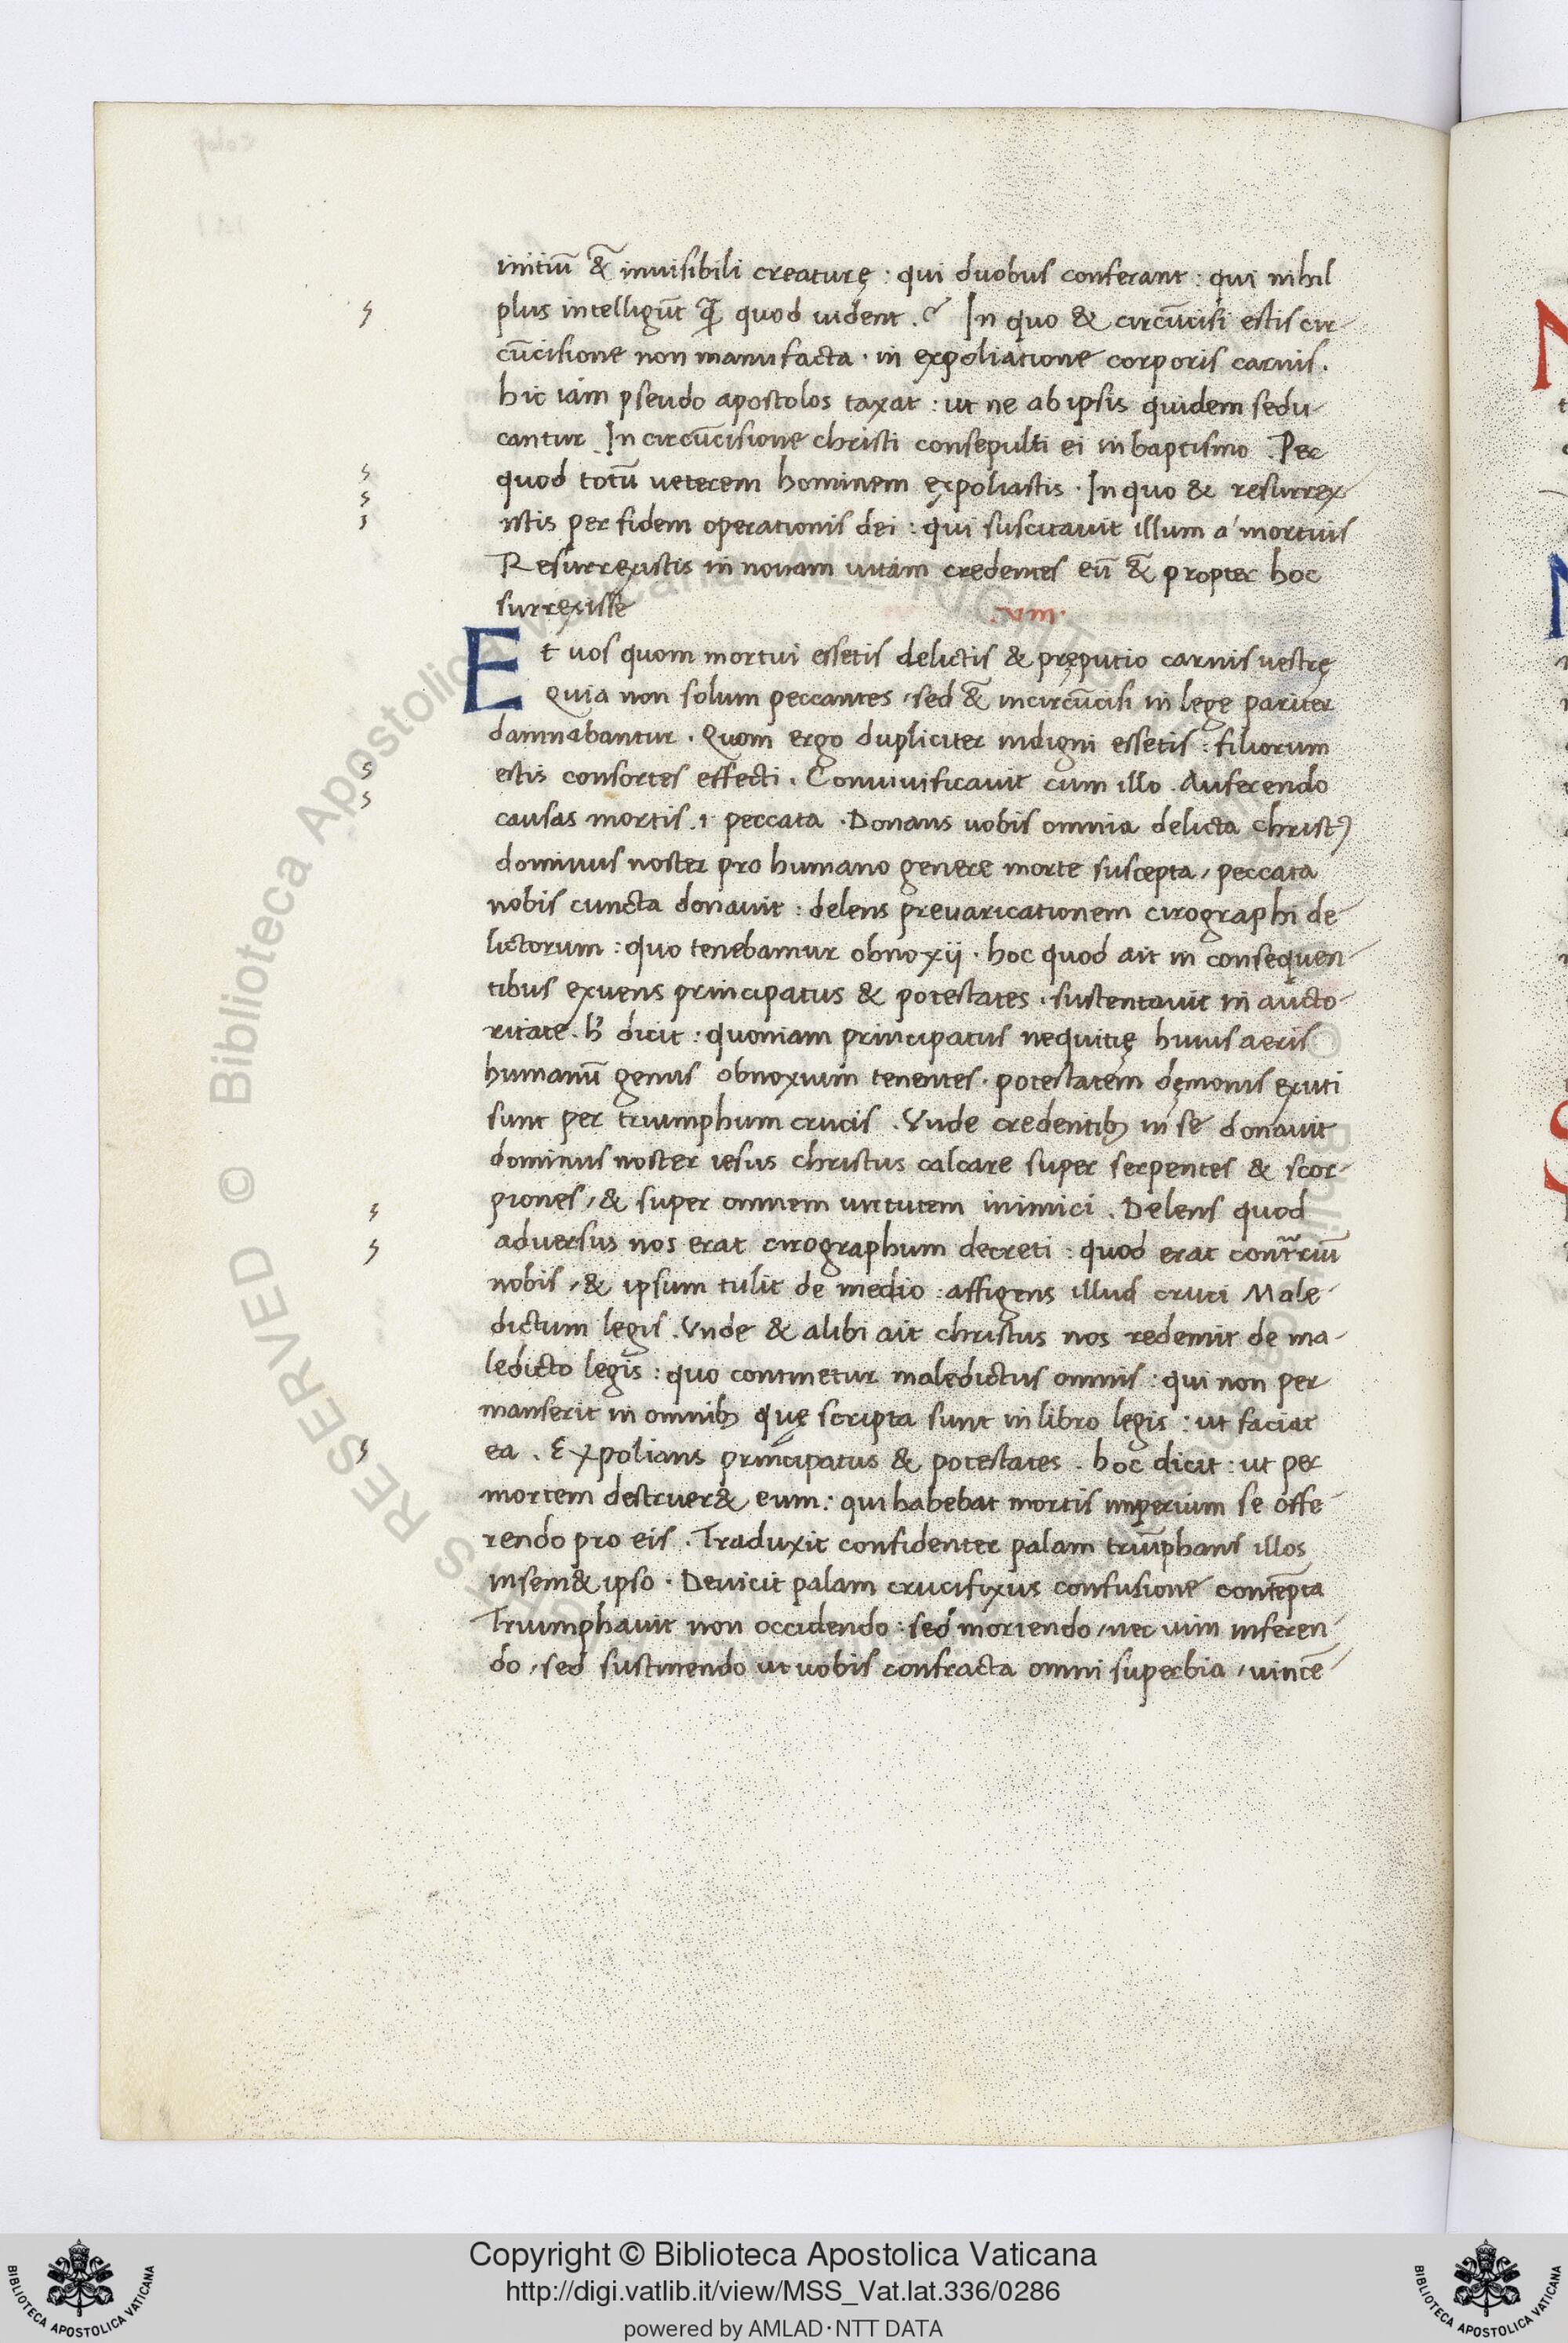 initiū &̄ inuisibili creaturę : qui duobus conferant : qui nihil
plus intelligūt q̄ quod uident . In quo & circūcisi estis cir-
cūcisione non manufacta . in expoliatione corporis carnis .
hic iam pseudo apostolos taxat : ut ne ab ipsis quidem sedu-
cantur . In circūcisione christi consepulti ei in baptismo . Per
quod totū ueterem hominem expoliastis . In quo & resurrex-
istis per fidem operationis dei : qui suscitauit illum a mortuis
Resurrexistis in nouam uitam credentes eū &̄ propter hoc
surrexisse
Et uos quom mortui essetis delictis & pręputio carnis uestrę
Quia non solum peccantes / sed &̄ incircūcisi in lege pariter
damnabantur . Quom ergo dupliciter indigni essetis : filiorum
estis consortes effecti . Conuiuificauit cum illo . Auferendo
causas mortis .i. peccata . Donans uobis omnia delicta christꝰ
dominus noster pro humano genere morte suscepta / peccata
nobis cuncta donauit : delens preuaricationem cirographi de-
lictorum : quo tenebamur obnoxij . hoc quod ait in consequen-
tibus exuens principatus & potestates . sustentauit in aucto-
ritate . h̓ dicit : quoniam principatus nequitię huius aeris
humanū genus obnoxium tenentes . potestatem dęmonis exuti
sunt per triumphum crucis . Vnde credentibꝫ in se donauit
dominus noster iesus christus calcare super serpentes & scor-
piones / & super omnem uirtutem inimici . Delens quod
aduersus nos erat cirographum decreti : quod erat contrariū
nobis / & ipsum tulit de medio : affigens illud cruci Male-
dictum legis . Vnde & alibi ait christus nos redemit de ma-
ledicto legis : quo continetur maledictus omnis : qui non per
manserit in omnibꝫ quę scripta sunt in libro legis : ut faciat
ea . Expolians principatus & potestates . hoc dicit : ut per
mortem destruer& eum : qui habebat mortis imperium se offe-
rendo pro eis . Traduxit confidenter palam triūphans illos
insem& ipso . Deuicit palam crucifixus confusione contēpta
Triumphauit non occidendo : sed moriendo / nec uim inferen-
do / sed sustinendo ut uobis confracta omni superbia / uince-
Copyright © Biblioteca Apostolica Vaticana
http://digi.vatlib.it/view/MSS_Vat.lat.336/0286
powered by AMLAD·NTT DATA
BIBLIOTECA APOSTOLICA VATICANA
BIBLIOTECA APOSTOLICA VATICANA